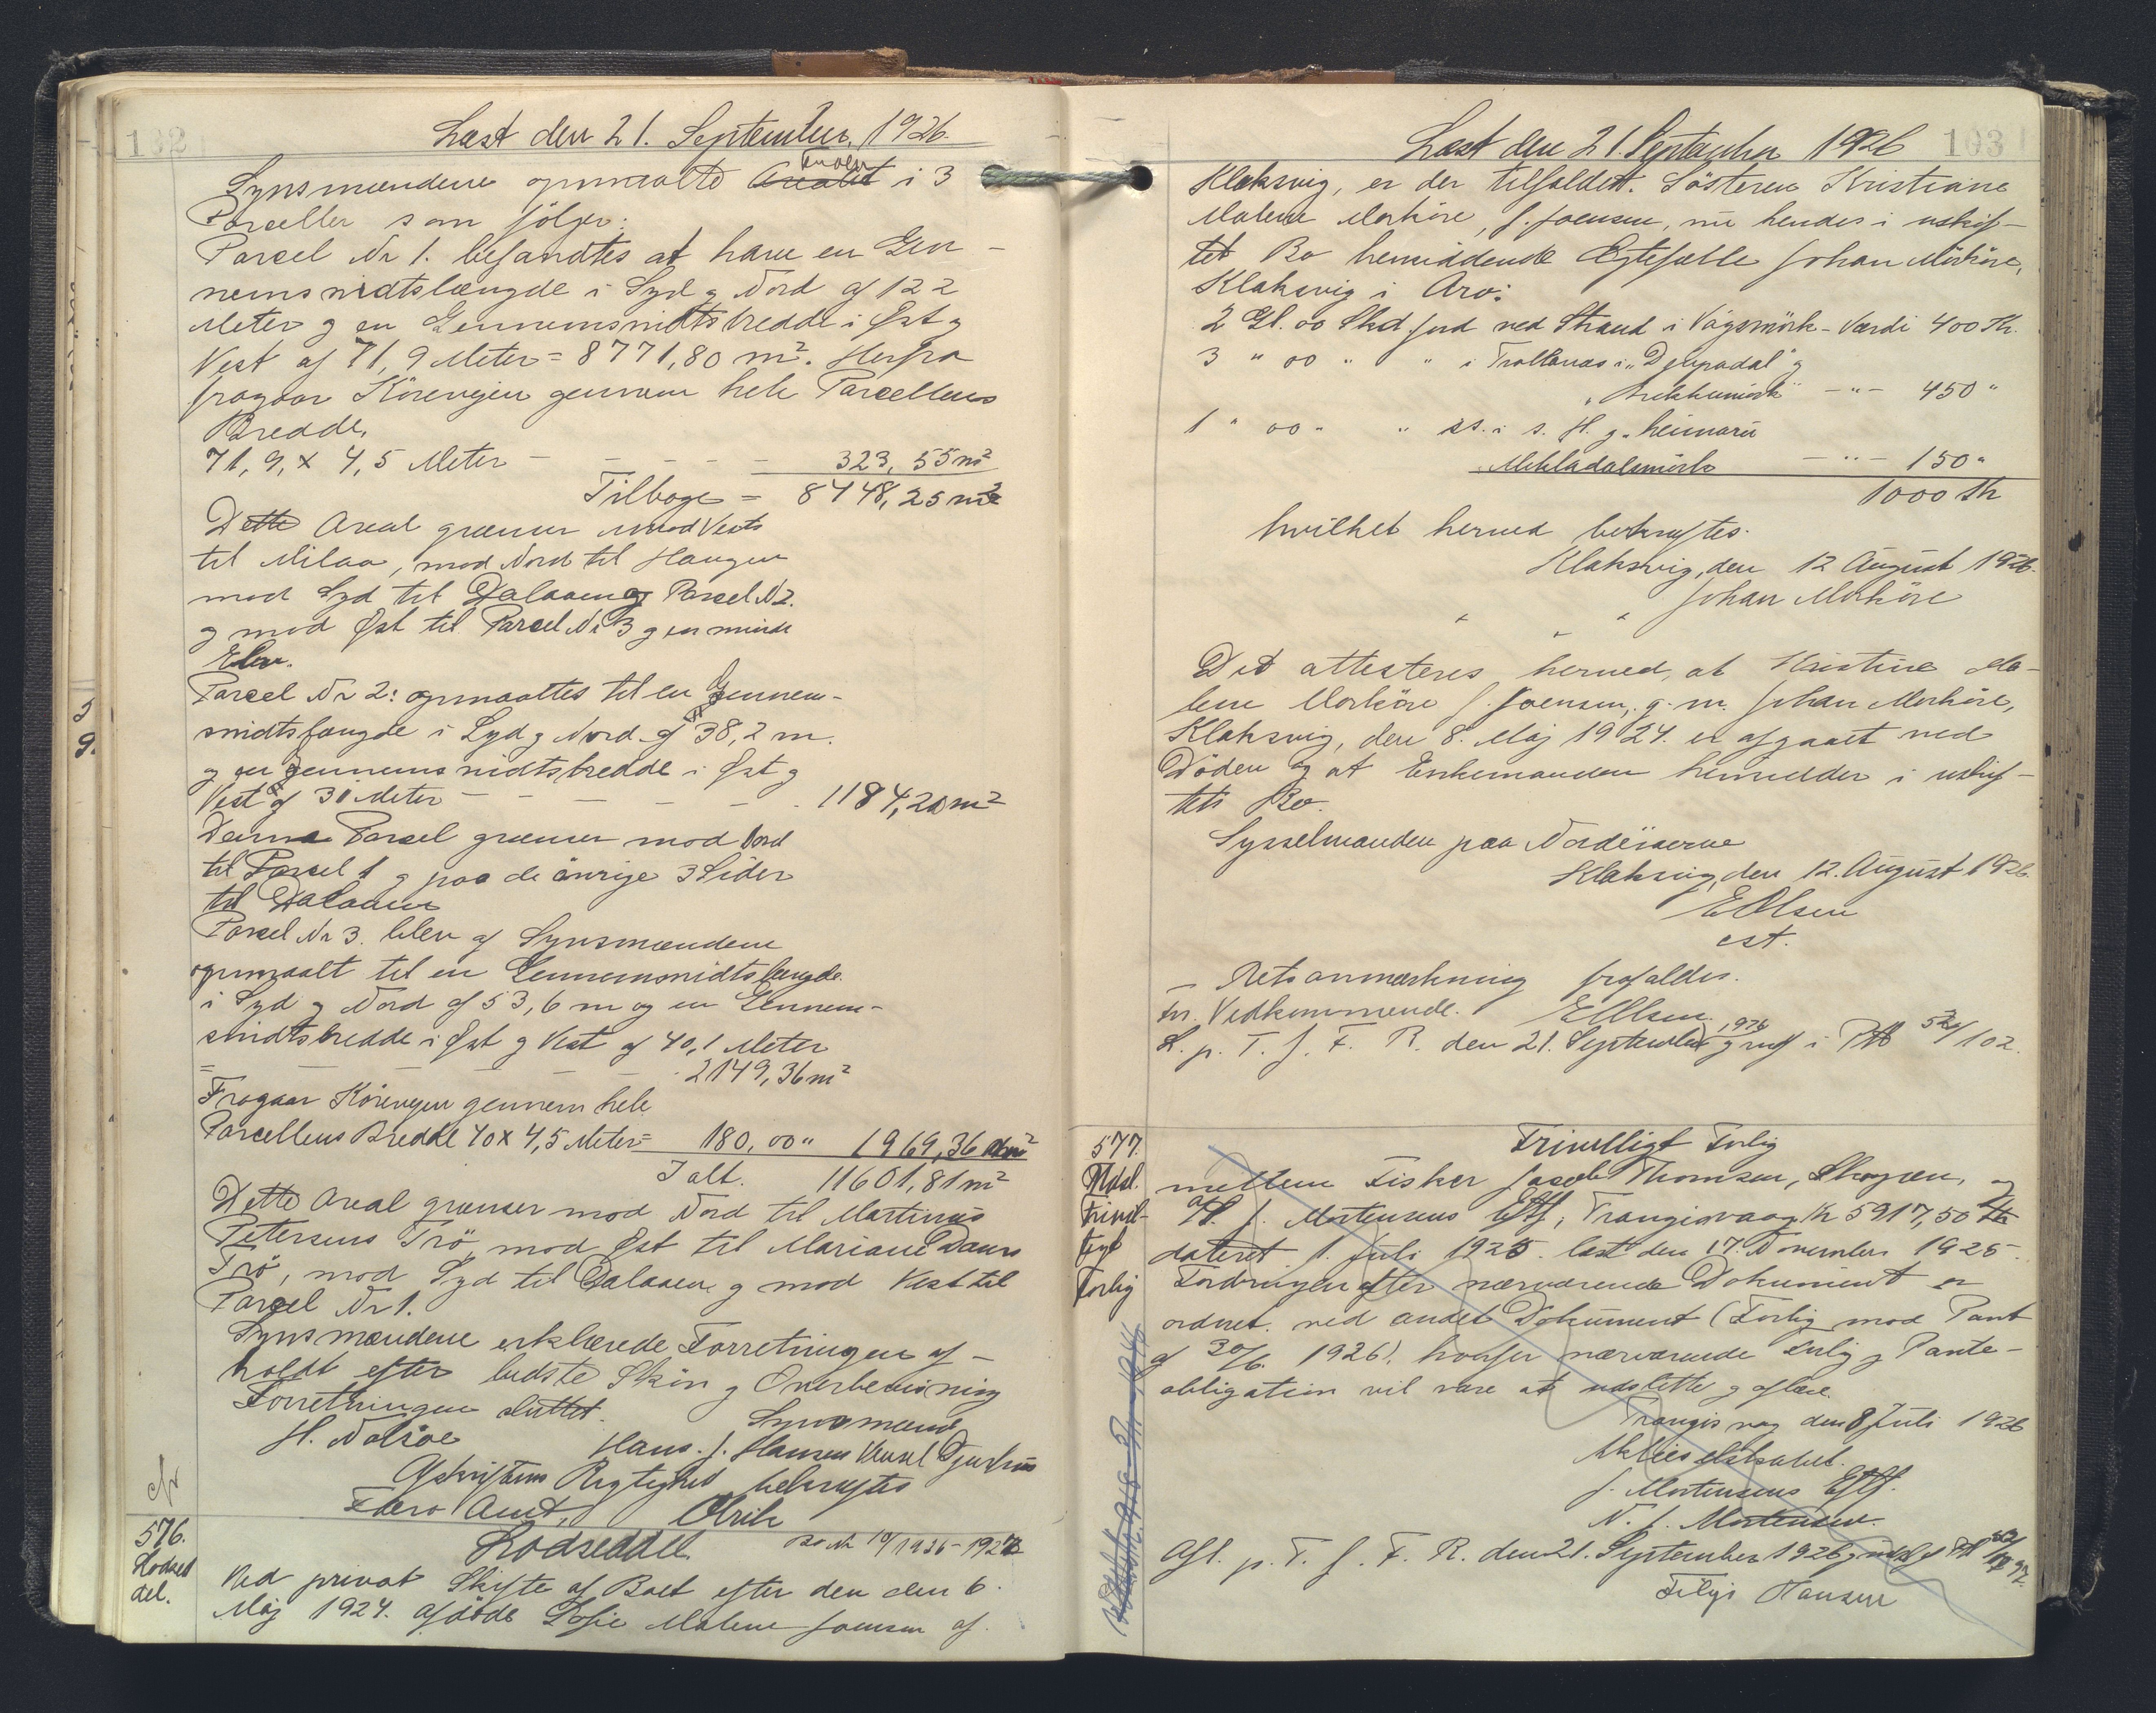 132
Læst den 21. September 1926.
Synsmændene opmaalte Arealet i 3
Parceller som følger:
Parcel Nr 1. befandtes at have en Gen-
nemsnidtslængde i Syd og Nord af 122
Meter og en Gennemsnidtsbredde i Øst og
Vest af 71,9 Meter = 8771,80 m². Herfra
fragaar Körevejen gennem hele Parcellens
Bredde,
71,9 x 4,5 Meter - - - - - 323,55 m²
Tilbage = 8448,25 m²
Dette Areal grænser mod Vest
til Milaa, mod Nord til Haugen
mod Syd til Dalaaen og Parcel Nr 2.
og mod Øst til Parcel Nr 3 og en mindre
Elv.
Parcel Nr 2: opmaaltes til en Gennem-
snidtslængde i Syd og Nord af 38,2 m.
og en Gennemsnidtsbredde i Øst og
Vest af 31 Meter - - - - - 1184,20 m²
Denne Parcel grænser mod Nord
til Parcel 1 og paa de övrige 3 Sider
til Dalaaen
Parcel Nr 3. blev af Synsmændene
opmaalt til en Gennemsnidtslængde
i Syd og Nord af 53,6 m og en Gennem-
snidtsbredde i Øst og Vest af 40,1 Meter
= - - - - - 2149,36 m²
Fragaar Körevejen gennem hele
Parcellens Bredde 40 x 4,5 Meter = 180,00 " 1969,36 m²
Ialt. 11601,81 m²
Dette Areal grænser mod Nord til Martinus
Petersens Trö, mod Øst til Mariane Daurs
Trö, mod Syd til Dalaaen og mod Vest til
Parcel Nr 1.
Synsmændene erklærede Forretningen af-
holdt efter bedste Skön og Overbevisning
Forretningen sluttet.
Synsmænd
H. Nolsöe Hans. J. Hansen Wensel Djurhuus
Afskriftens Rigtighed bekræftes
Færø Amt, Olrik
576.
Lodsed
del.
Lodseddel. Bo Nr 10/1936-1927
Ved privat Skifte af Boet efter den den 6.
Maj 1924. afdöde Sofie Malene Joensen af
103
Læst den 21. September 1926
Klaksvig, er der tilfaldet. Sösteren Kristiane
Malene Morköre, f. Joensen, nu hendes i uskif-
tet Bo hensiddende Ægtefælle Johan Morköre,
Klaksvig i Arv:
2 Gl. 00 Skd. Jord ved Strand i Vágsmörk - Værdi 400 Kr.
3 " 00 " " i Trollanæs i "Djupadal" og
450 "
1 " 00 " " ss. i s. H. og heimaru
Mikladalsmörk - " - 150 "
1000 Kr
hvilket herved bekræftes.
Klaksvig, den 12 August 1926.
Johan Morköre
Det attesteres herved, at Kristine Ma-
lene Morköre f. Joensen, g. m. Johan Morköre,
Klaksvig, den 8. Maj 1924. er afgaaet ved
Döden og at Enkemanden hensidder i uskif-
tet Bo.
Sysselmanden paa Norderöerne
Klaksvig, den 12. August 1926.
E Olsen
cst.
- Retsanmærkning frafalder.
for Vedkommende. E Olsen.
L. p. T. f. F. R. den 21. September 1926 og indf i Ptb 5h/102.
577.
Udsl.
Frivil-
ligt
Forlig
Frivilligt Forlig
mellem Fisker Jacob Thomsen, Skopen, og
A/S. J. Mortensens Eftf, Trangisvaag Kr 5917,50
dateret 1. Juli 1925. læst den 17. November 1925.
Fordringen efter nærværende Dokument er
ordnet ved andet Dokument (Forlig mod Pant
af 30/6. 1926), hvorfor nærværende Forlig og Pante-
obligation vil være at udslette og aflæse.
Trangisvaag den 8 Juli 1926
Aktieselskabet.
J. Mortensens Eftf.
N. J. Mortensen.
Afl. p. T. f. F. R. den 21. September 1926 og udsl af Ptb
Filip Hansen